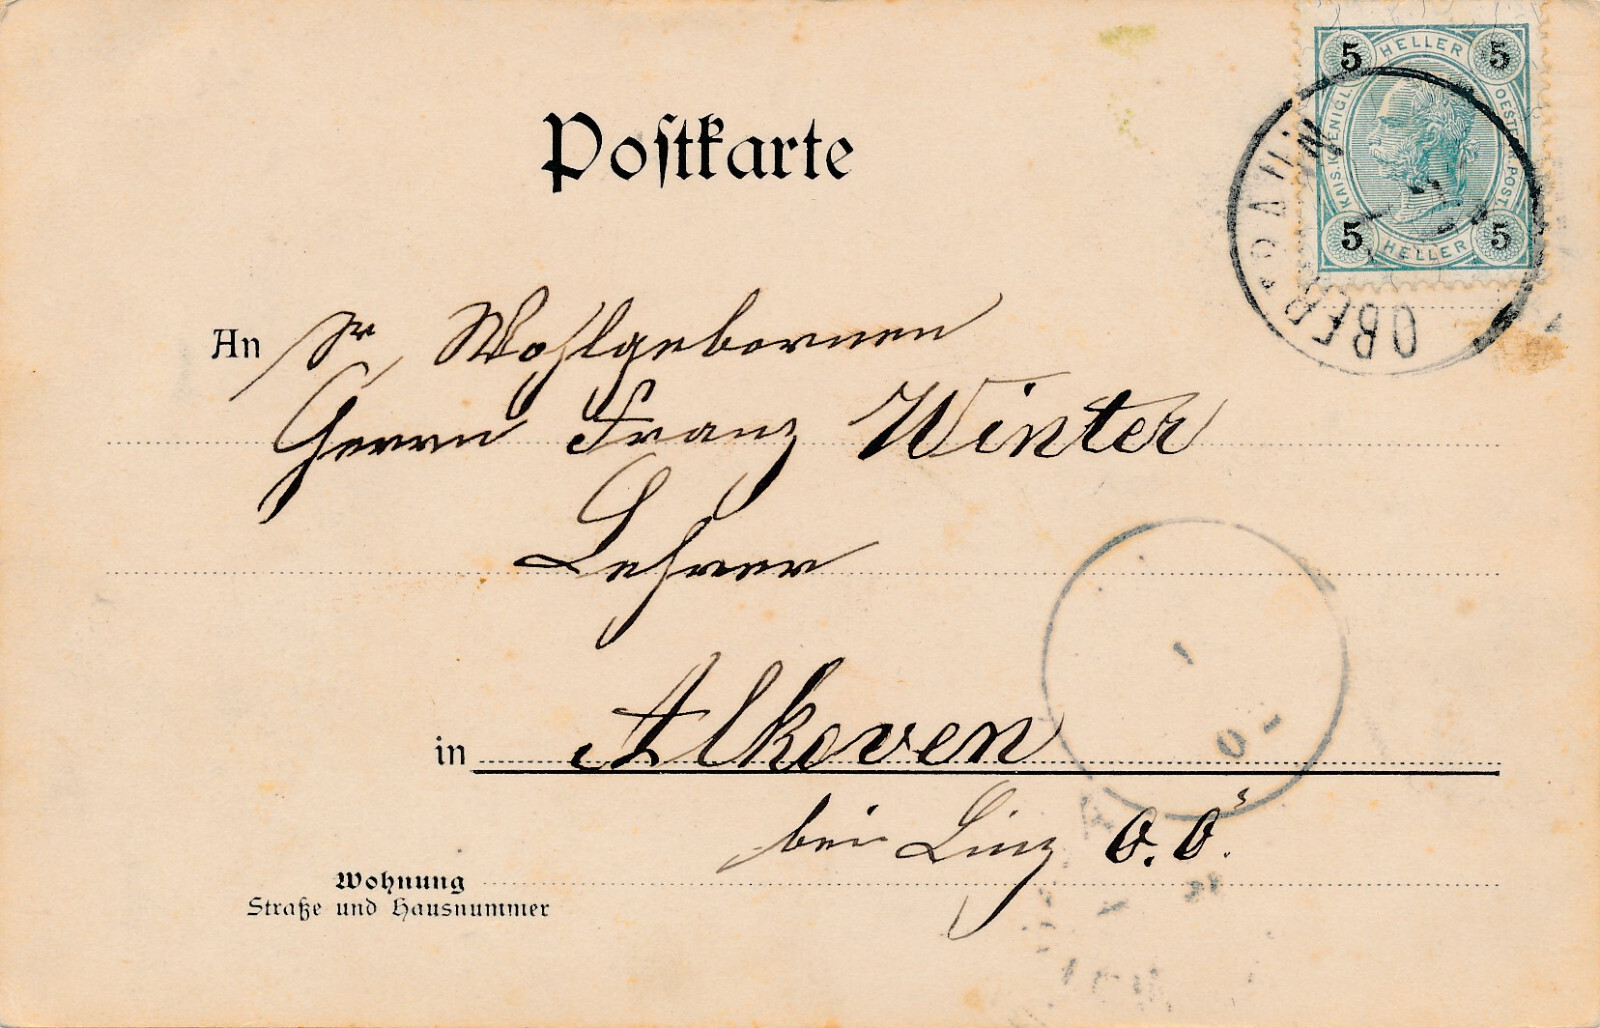 Postkarte
5 HELLER 5
KAIS. KÖNIGL. OESTERR. POST.
5 HELLER 5
OBERTRAUN
An Sr. Wohlgebornen
Herrn Franz Winter
Lehrer
in Alkoven
bei Linz O. Ö.
Wohnung
Straße und Hausnummer